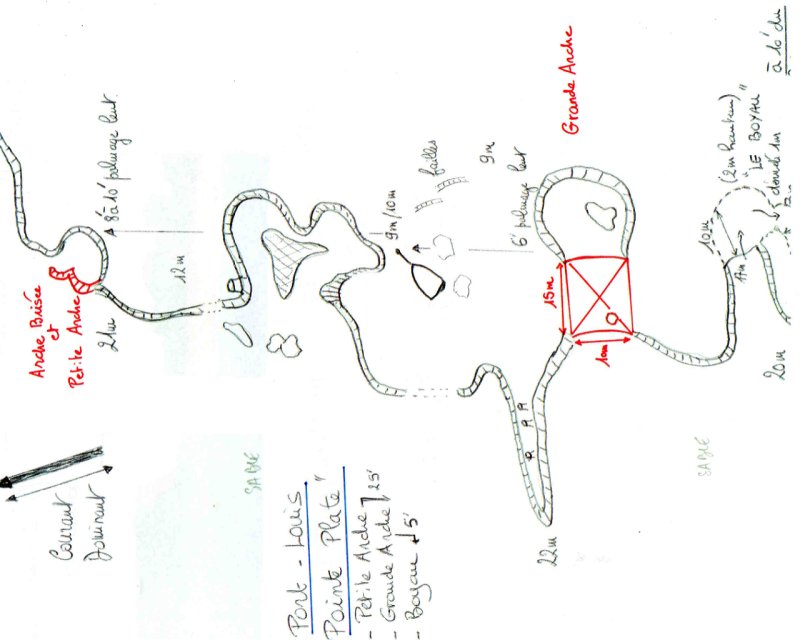 Port-Louis
"Pointe Plate"
- Petite Arche
- Grande Arche 25'
- Boyau 5'
Courant
Dominant
Arche Brisée
et
Petite Arche
21m
12m
palmage lent.
SABLE
9m/10m
failles
9m
6' palmage lent
Grande Arche
15m
10m
22m
SABLE
10m
(2m hauteur)
"LE BOYAU"
1m
20m
à 10' du